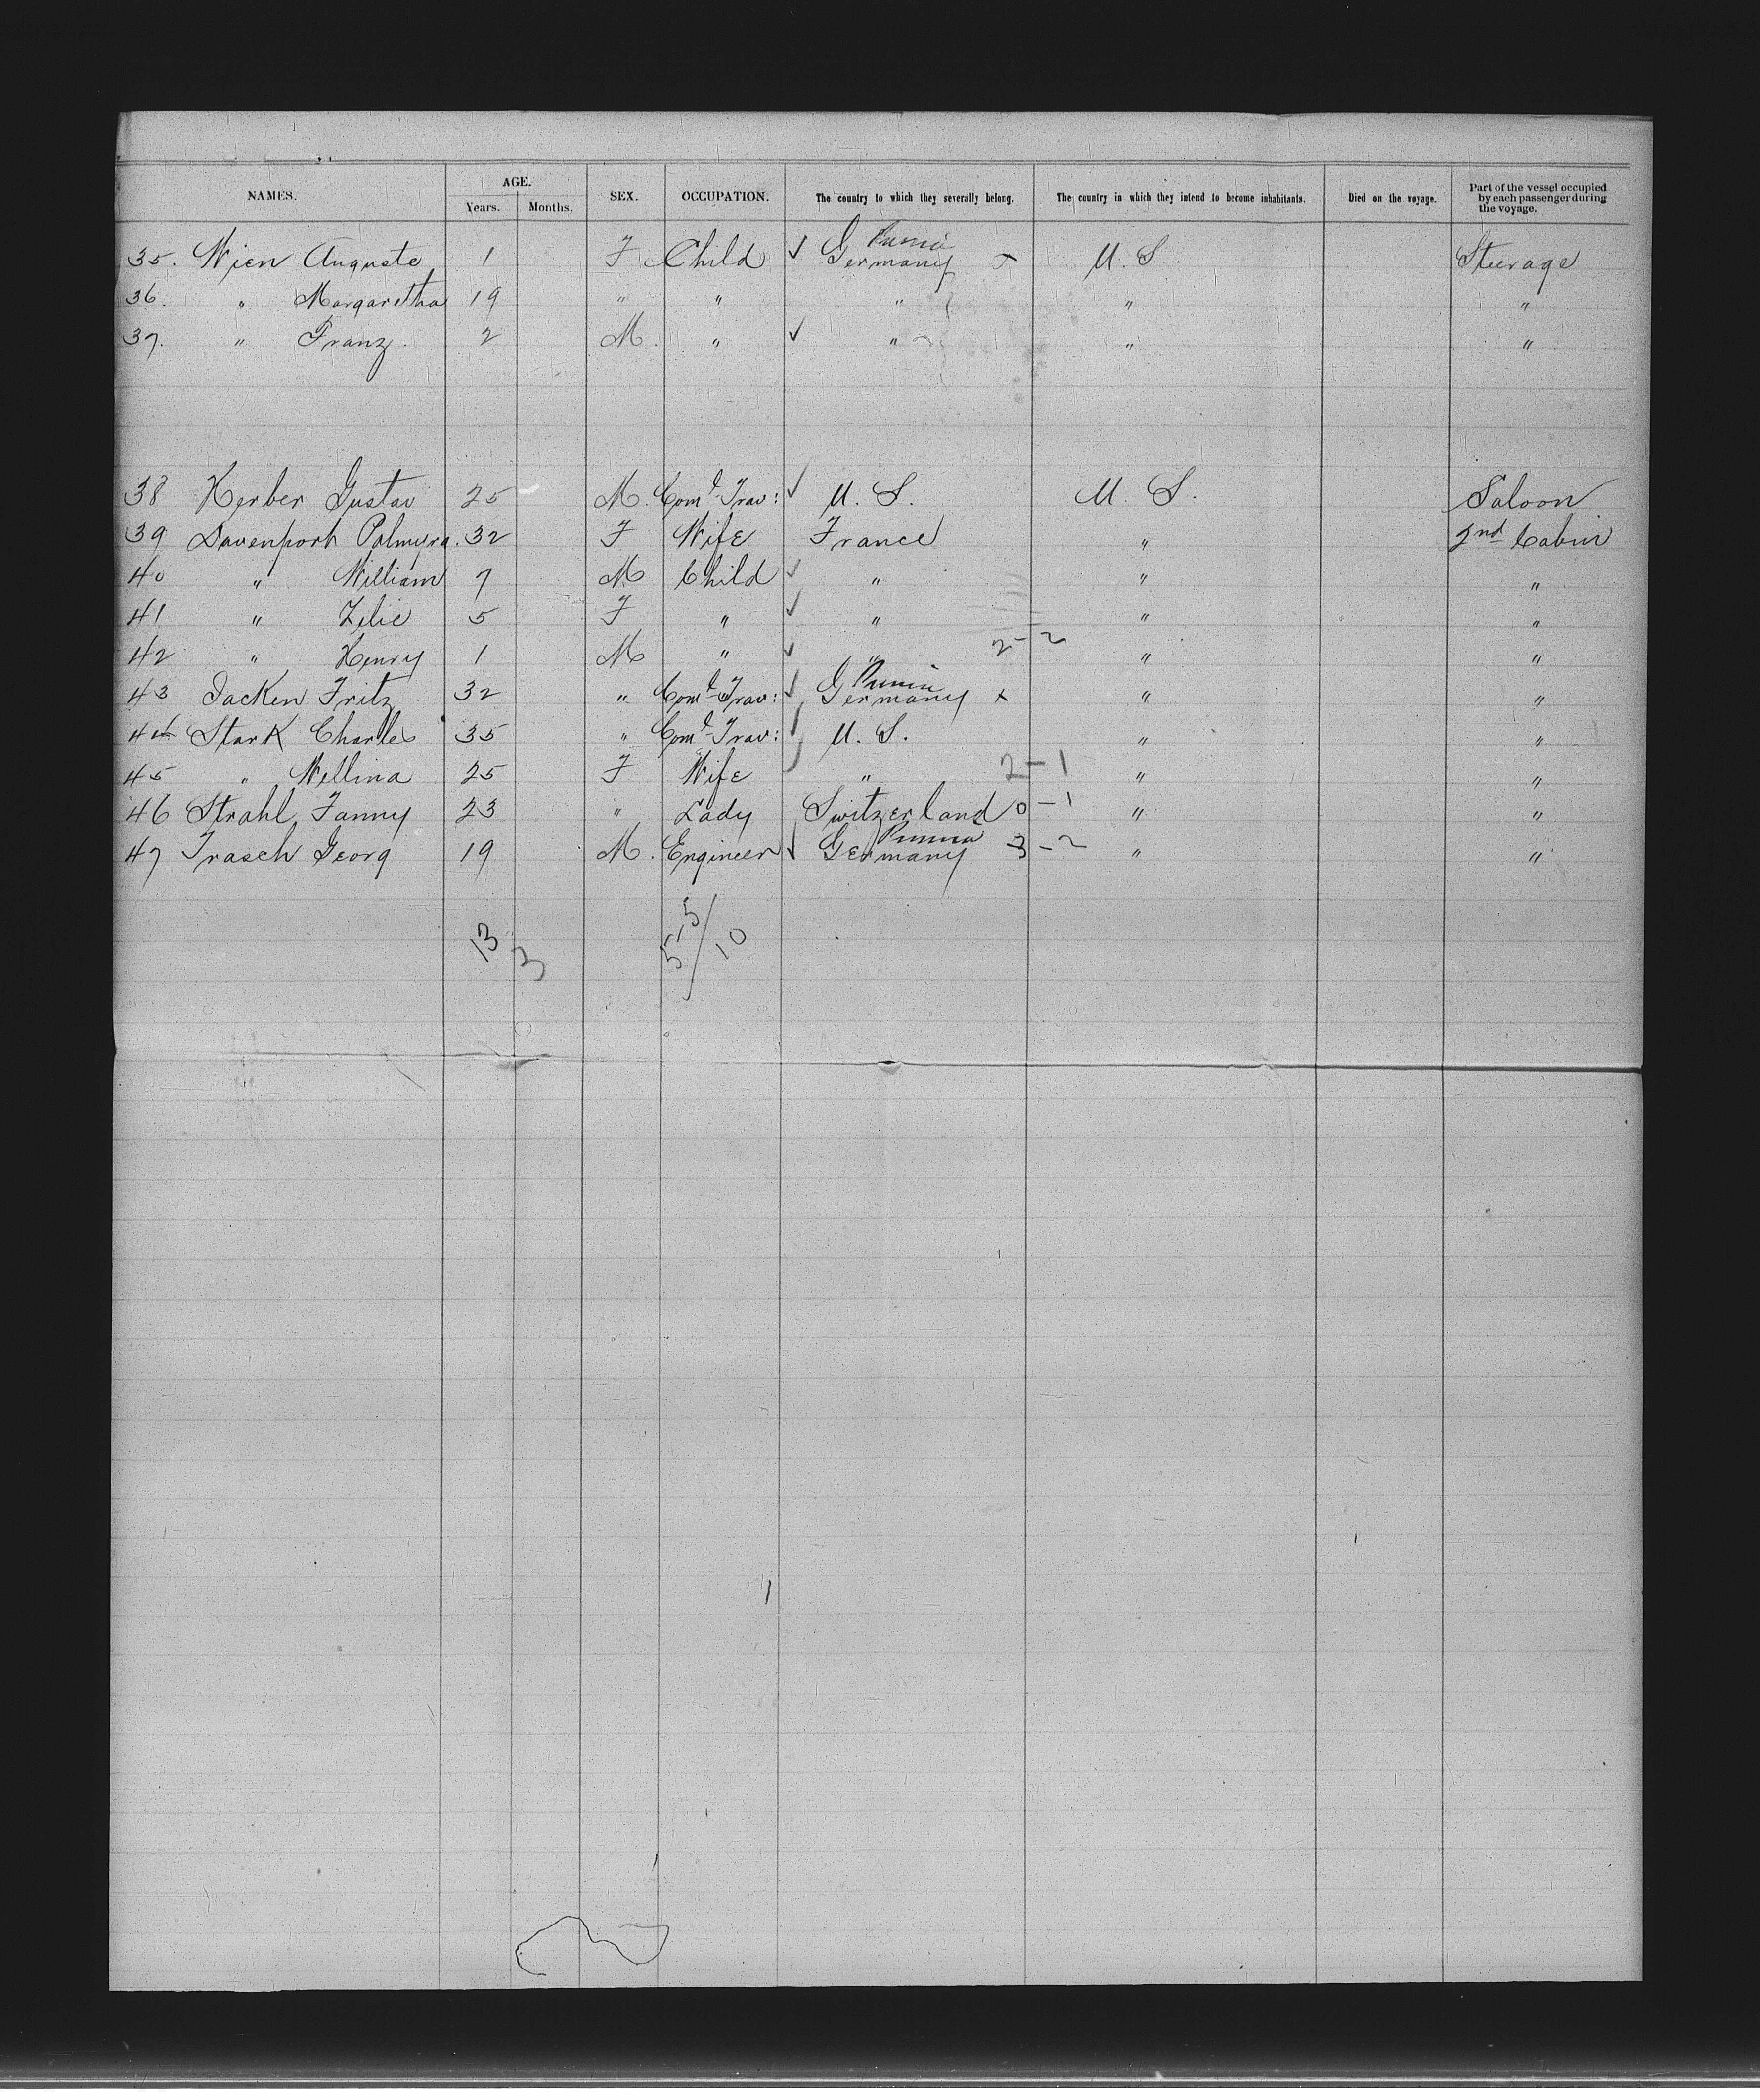 NAMES. AGE. Years. Months. SEX. OCCUPATION. The country to which they severally belong. The country in which they intend to become inhabitants. Died on the voyage. Part of the vessel occupied by each passenger during the voyage.
35. Wien Auguste 1 F Child ✓ Germany Prussia x U. S. Steerage
36. " Margaretha 19 " " " " "
37. " Franz. 2 M. " ✓ " " "
38 Kerber Gustav 25 M. Coml Trav: ✓ U. S. U. S. Saloon
39 Davenport Palmyra. 32 F Wife France " 2nd Cabin
40 " William 7 M Child ✓ " " "
41 " Zelie 5 F " ✓ " " "
42 " Henry 1 M " ✓ " 2-2 " "
43 Jacken Fritz 32 " Coml Trav: ✓ Germany Prussia x " "
44 Stark Charles 35 " Coml Trav: ✓ U. S. " "
45 " Wellina 25 F Wife " 2-1 " "
46 Strahl, Fanny 23 " Lady Switzerland 0-1 " "
47 Trasch Georg 19 M. Engineer ✓ Germany Prussia 3-2 " "
13 3 5-5/10